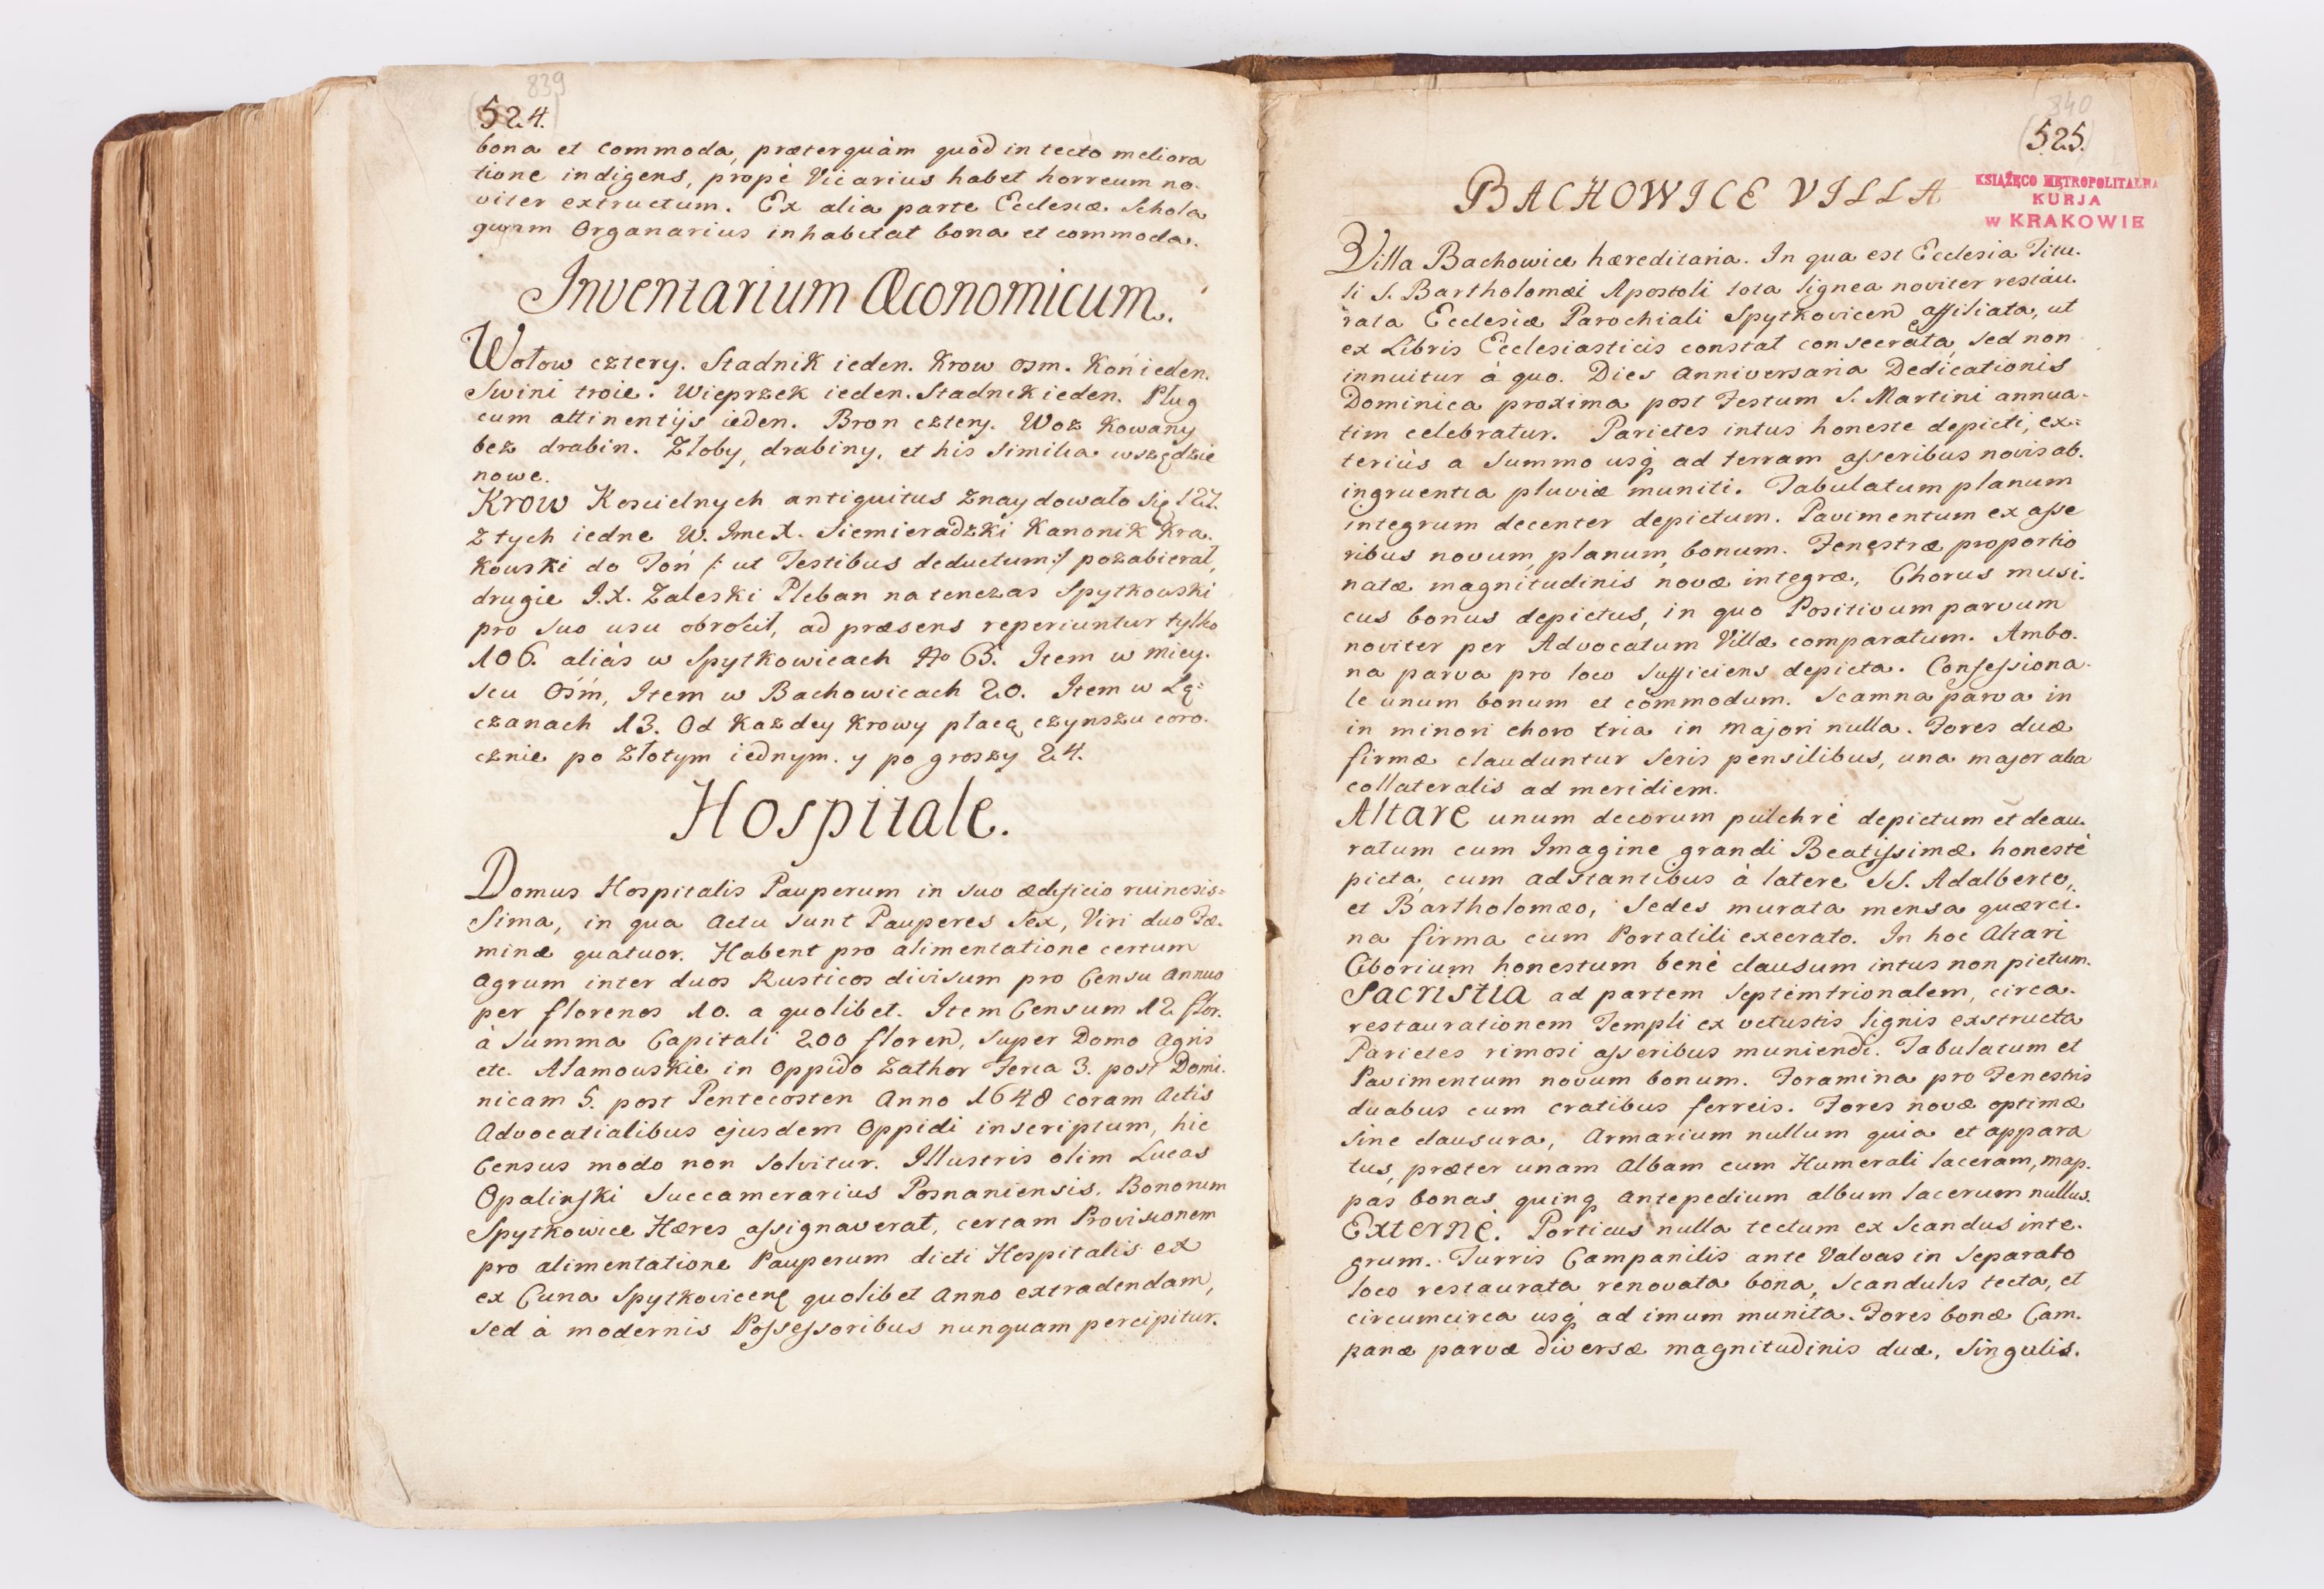 839
524.
bona et commoda, præterquàm quòd in tecto meliora
tione indigens, propè Vicarius habet horreum no-
viter extructum. Ex alia parte Ecclesiæ Schola
quam Organarius inhabitat bona et commoda.
Inventarium Œconomicum.
Wołow cztery. Stadnik ieden. Krow osm. Koń ieden.
Swini troie. Wieprzek ieden. Stadnik ieden. Pług
cum attinentijs ieden. Bron cztery. Woz Kowany
bez drabin. Złoby, drabiny, et his similia wszędzie
nowe.
Krow Koscielnych antiquitus znaydowało się 127.
z tych iedne W. Jmc X. Siemieradzki Kanonik Kra-
kowski do Toń /: ut Testibus deductum :/ pozabierał,
drugie J.X. Zaleski Pleban natenczas Spytkowski
pro suo usu obrocił, ad præsens reperiuntur tylko
106. aliàs w Spytkowicach No 65. Item w miey-
scu Ośm, Item w Bachowicach 20. Item w Łą=
czanach 13. Od Kazdey Krowy płacą czynszu coro-
cznie po Złotym iednym. y po groszy 24.
Hospitale.
Domus Hospitalis Pauperum in suo ædificio ruinosis=
sima, in qua actu sunt Pauperes sex, Viri duo Fæ-
minæ quatuor. Habent pro alimentatione certum
agrum inter duos Rusticos divisum pro Censu annuo
per florenos 10. a quolibet. Item Censum 12 flor.
à Summa Capitali 200 floren, super Domo agris
etc. Adamowskie in Oppido Zathor Feria 3. post Domi-
nicam 5. post Pentecosten Anno 1648 coram Actis
Advocatialibus ejusdem Oppidi inscriptum, hic
Census modo non solvitur. Illustris olim Lucas
Opaliński Succamerarius Posnaniensis. Bonorum
Spytkowice Hæres assignaverat, certam Provisionem
pro alimentatione Pauperum dicti Hospitalis ex
ex Curia Spytkovicen quolibet Anno extradendam,
sed à modernis Possessoribus nunquam percipitur.
840
525.
KSIĄŻĘCO METROPOLITALNA
KURJA
w KRAKOWIE
BACHOWICE VILLA
Villa Bachowice hæreditaria. In qua est Ecclesia Titu-
li S. Bartholomæi Apostoli tota lignea noviter restau-
rata Ecclesiæ Parochiali Spytkovicen affiliata, ut
ex Libris Ecclesiasticis constat consecrata, sed non
innuitur à quo. Dies Anniversaria Dedicationis
Dominica proxima post Festum S. Martini annua-
tim celebratur. Parietes intus honeste depicti, ex=
teriùs a summo usq ad terram asseribus novis ab
ingruentia pluviæ muniti. Tabulatum planum
integrum decenter depictum. Pavimentum ex asse
ribus novum, planum, bonum. Fenestræ proportio
natæ magnitudinis novæ integræ, Chorus musi-
cus bonus depictus, in quo Positivum parvum
noviter per Advocatum Villæ comparatum. Ambo-
na parva pro loco sufficiens depicta. Confessiona-
le unum bonum et commodum. Scamna parva in
in minori choro tria in majori nulla. Fores duæ
firmæ clauduntur seris pensilibus, una major alia
collateralis ad meridiem.
Altare unum decorum pulchrè depictum et deau-
ratum cum Imagine grandi Beatissimæ honestè
picta, cum adstantibus à latere SS. Adalberto,
et Bartholomæo, Sedes murata mensa quærci-
na firma cum Portatili execrato. In hoc Altari
Ciborium honestum benè clausum intus non pictum.
Sacristia ad partem septemtrionalem, circa
restaurationem Templi ex vetustis lignis exstructa
Parietes rimosi asseribus muniendi. Tabulatum et
Pavimentum novum bonum. Foramina pro Fenestris
duabus cum cratibus ferreis. Fores novæ optimæ
sine clausura, Armarium nullum quia et appara
tus, præter unam Albam cum Humerali laceram, map-
pas bonas quinq antepedium album lacerum nullus.
Externè. Porticus nulla tectum ex Scandulis inte-
grum. Turris Campanilis ante Valvas in separato
loco restaurata renovata bona, scandulis tecta, et
circumcirca usq ad imum munita. Fores bonæ Cam-
panæ parvæ diversæ magnitudinis duæ, Singulis.